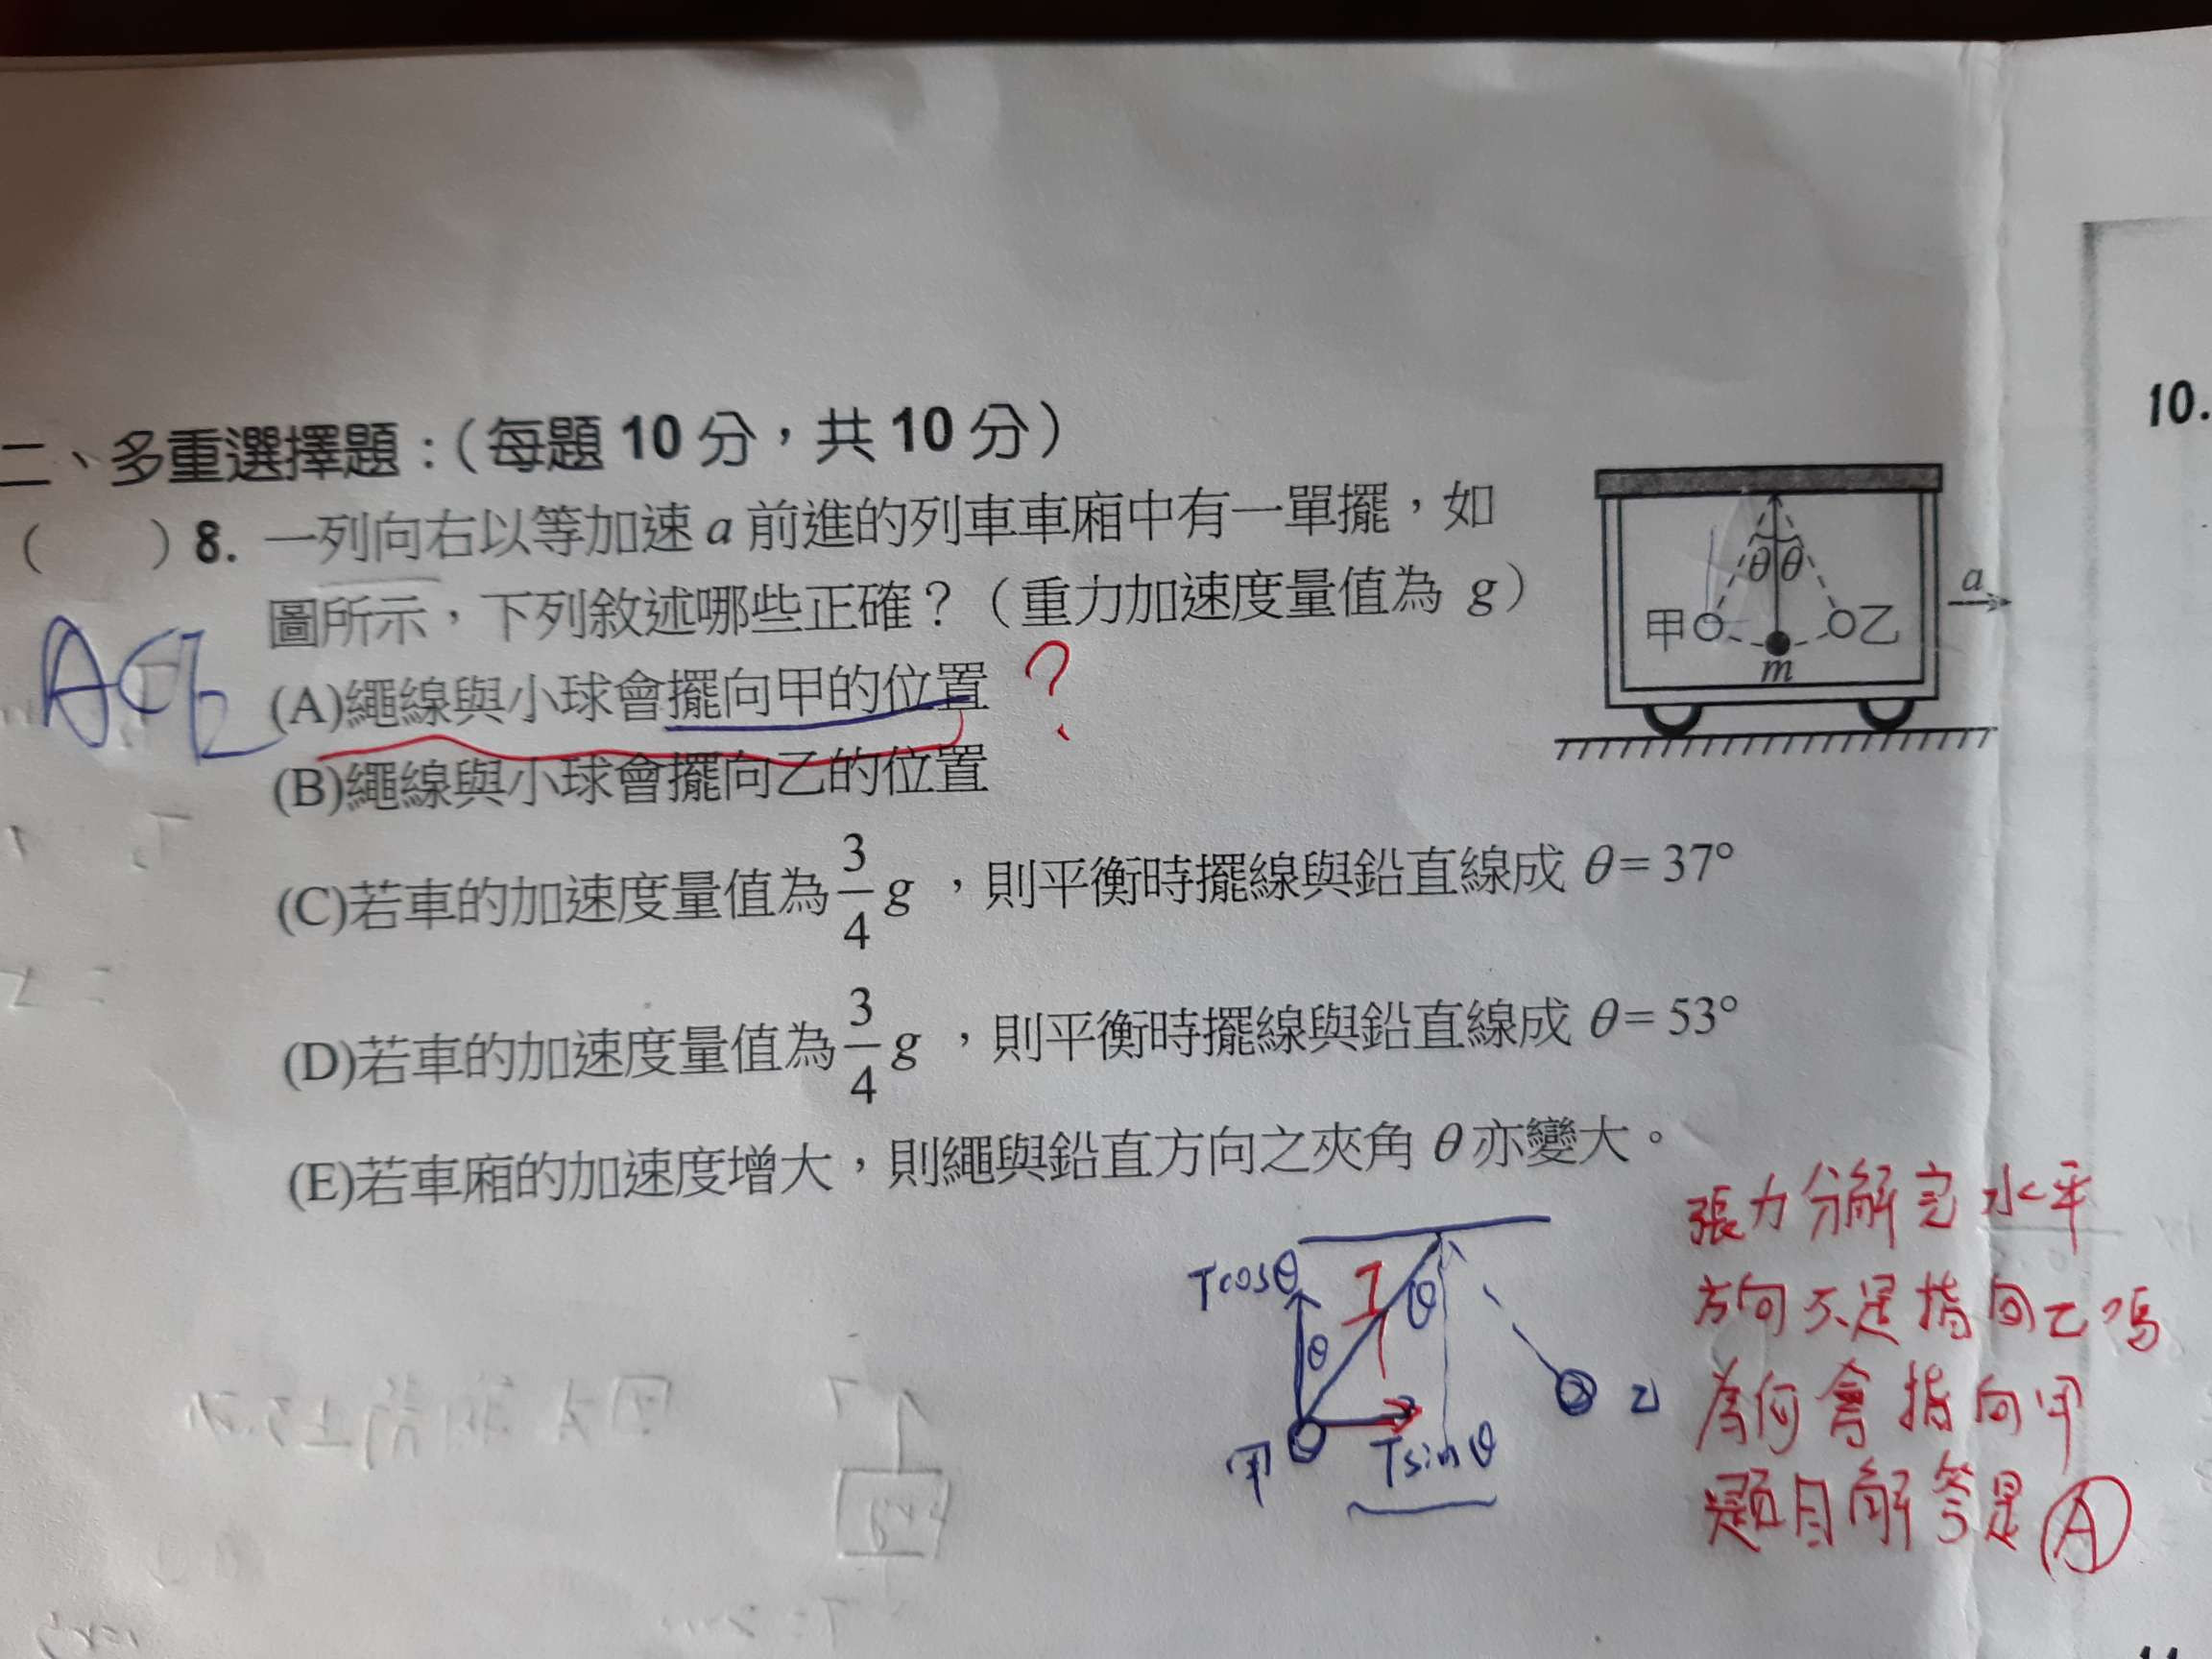 二、多重選擇題：（每題 10 分，共 10 分）
10.
（　　）8. 一列向右以等加速 a 前進的列車車廂中有一單擺，如
圖所示，下列敘述哪些正確？（重力加速度量值為 g）
ACE
(A)繩線與小球會擺向甲的位置 ?
(B)繩線與小球會擺向乙的位置
(C)若車的加速度量值為 3/4 g ，則平衡時擺線與鉛直線成 θ= 37°
(D)若車的加速度量值為 3/4 g ，則平衡時擺線與鉛直線成 θ= 53°
(E)若車廂的加速度增大，則繩與鉛直方向之夾角 θ 亦變大。
θ θ
甲 乙
m
a
Tcosθ
T
θ
θ
甲
Tsinθ
乙
張力分解完水平
方向不是指向乙嗎
為何會指向甲
題目解答是 A